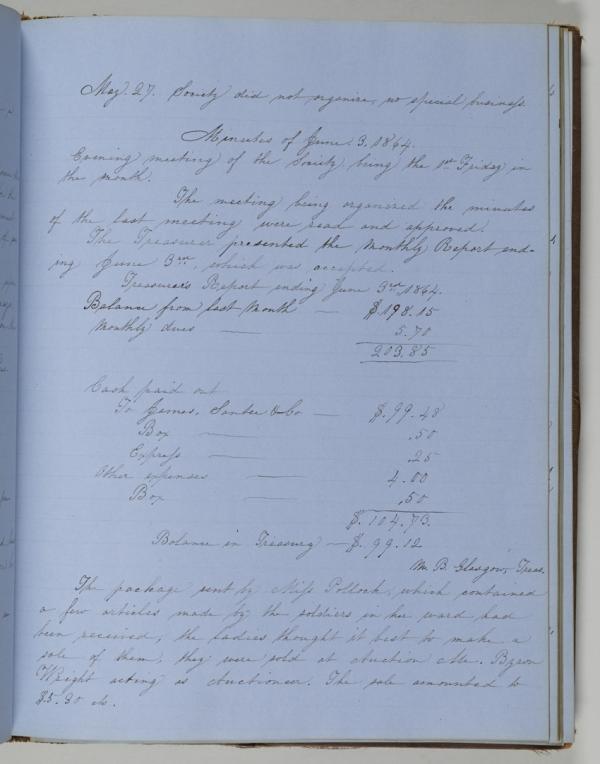 May. 27. Society did not organize, no special business.
Minutes of June. 3. 1864.
Evening meeting of the Society being the 1st Friday in
the month.
The meeting being organized the minutes
of the last meeting were read and approved.
The Treasurer presented the Monthly Report end-
ing June 3rd, which was accepted.
Treasurers Report ending June 3rd 1864.
Balance from last Month — $198.15
Monthly dues — 5.70
203.85
Cash paid out
To James, Santee & Co — $.99.48
Box — .50
Express — .25
Other expenses — 4.00
Box — .50
$.104.73.
Balance in Treasury — $.99.12
M. B. Glasgow, Treas.
The package sent by Miss Pollock, which contained
a few articles made by the soldiers in her ward had
been received, the Ladies thought it best to make a
sale of them, they were sold at Auction Mr. Byron
Wright acting as Auctioneer. The sale amounted to
$.5.30 cts.